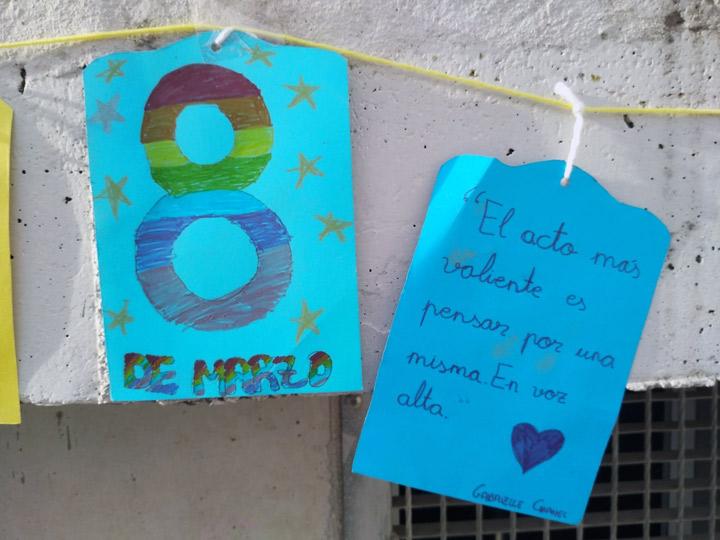 8
DE MARZO
"El acto más
valiente es
pensar por una
misma. En voz
alta."
GABRIELLE CHANEL